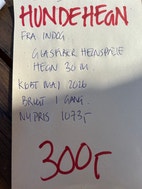 HUNDEHEGN
FRA INDOG
GLASFIBER HEGNSPÆLE
HEGN 30 M.
KØBT MAJ 2026
BRUGT 1 GANG.
NYPRIS 1073,-
300,-